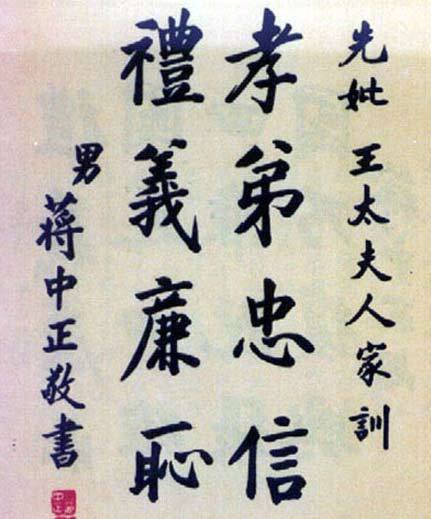 先妣王太夫人家訓
孝弟忠信
禮義廉恥
男蔣中正敬書